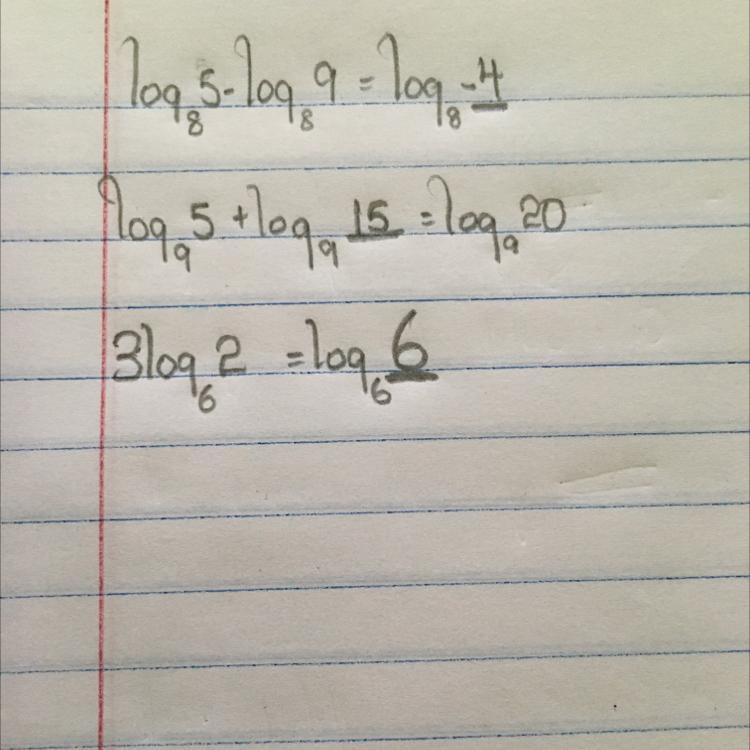 log₈5-log₈9=log₈-4
log₉5+log₉15=log₉20
3log₆2=log₆6